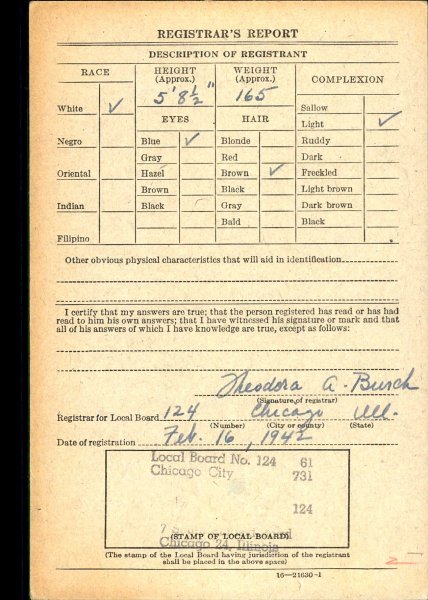 REGISTRAR'S REPORT
DESCRIPTION OF REGISTRANT
RACE
HEIGHT (Approx.)
WEIGHT (Approx.)
COMPLEXION
5' 8½"
165
White ✓
EYES
HAIR
Sallow
Light ✓
Negro
Blue ✓
Blonde
Ruddy
Gray
Red
Dark
Oriental
Hazel
Brown ✓
Freckled
Brown
Black
Light brown
Indian
Black
Gray
Dark brown
Bald
Black
Filipino
Other obvious physical characteristics that will aid in identification
I certify that my answers are true; that the person registered has read or has had
read to him his own answers; that I have witnessed his signature or mark and that
all of his answers of which I have knowledge are true, except as follows:
Theodora A. Busch
(Signature of registrar)
Registrar for Local Board 124 Chicago Ill.
(Number) (City or county) (State)
Date of registration Feb. 16, 1942
Local Board No. 124 61
Chicago City 731
124
(STAMP OF LOCAL BOARD)
Chicago 24, Illinois
(The stamp of the Local Board having jurisdiction of the registrant
shall be placed in the above space)
16—21630-1